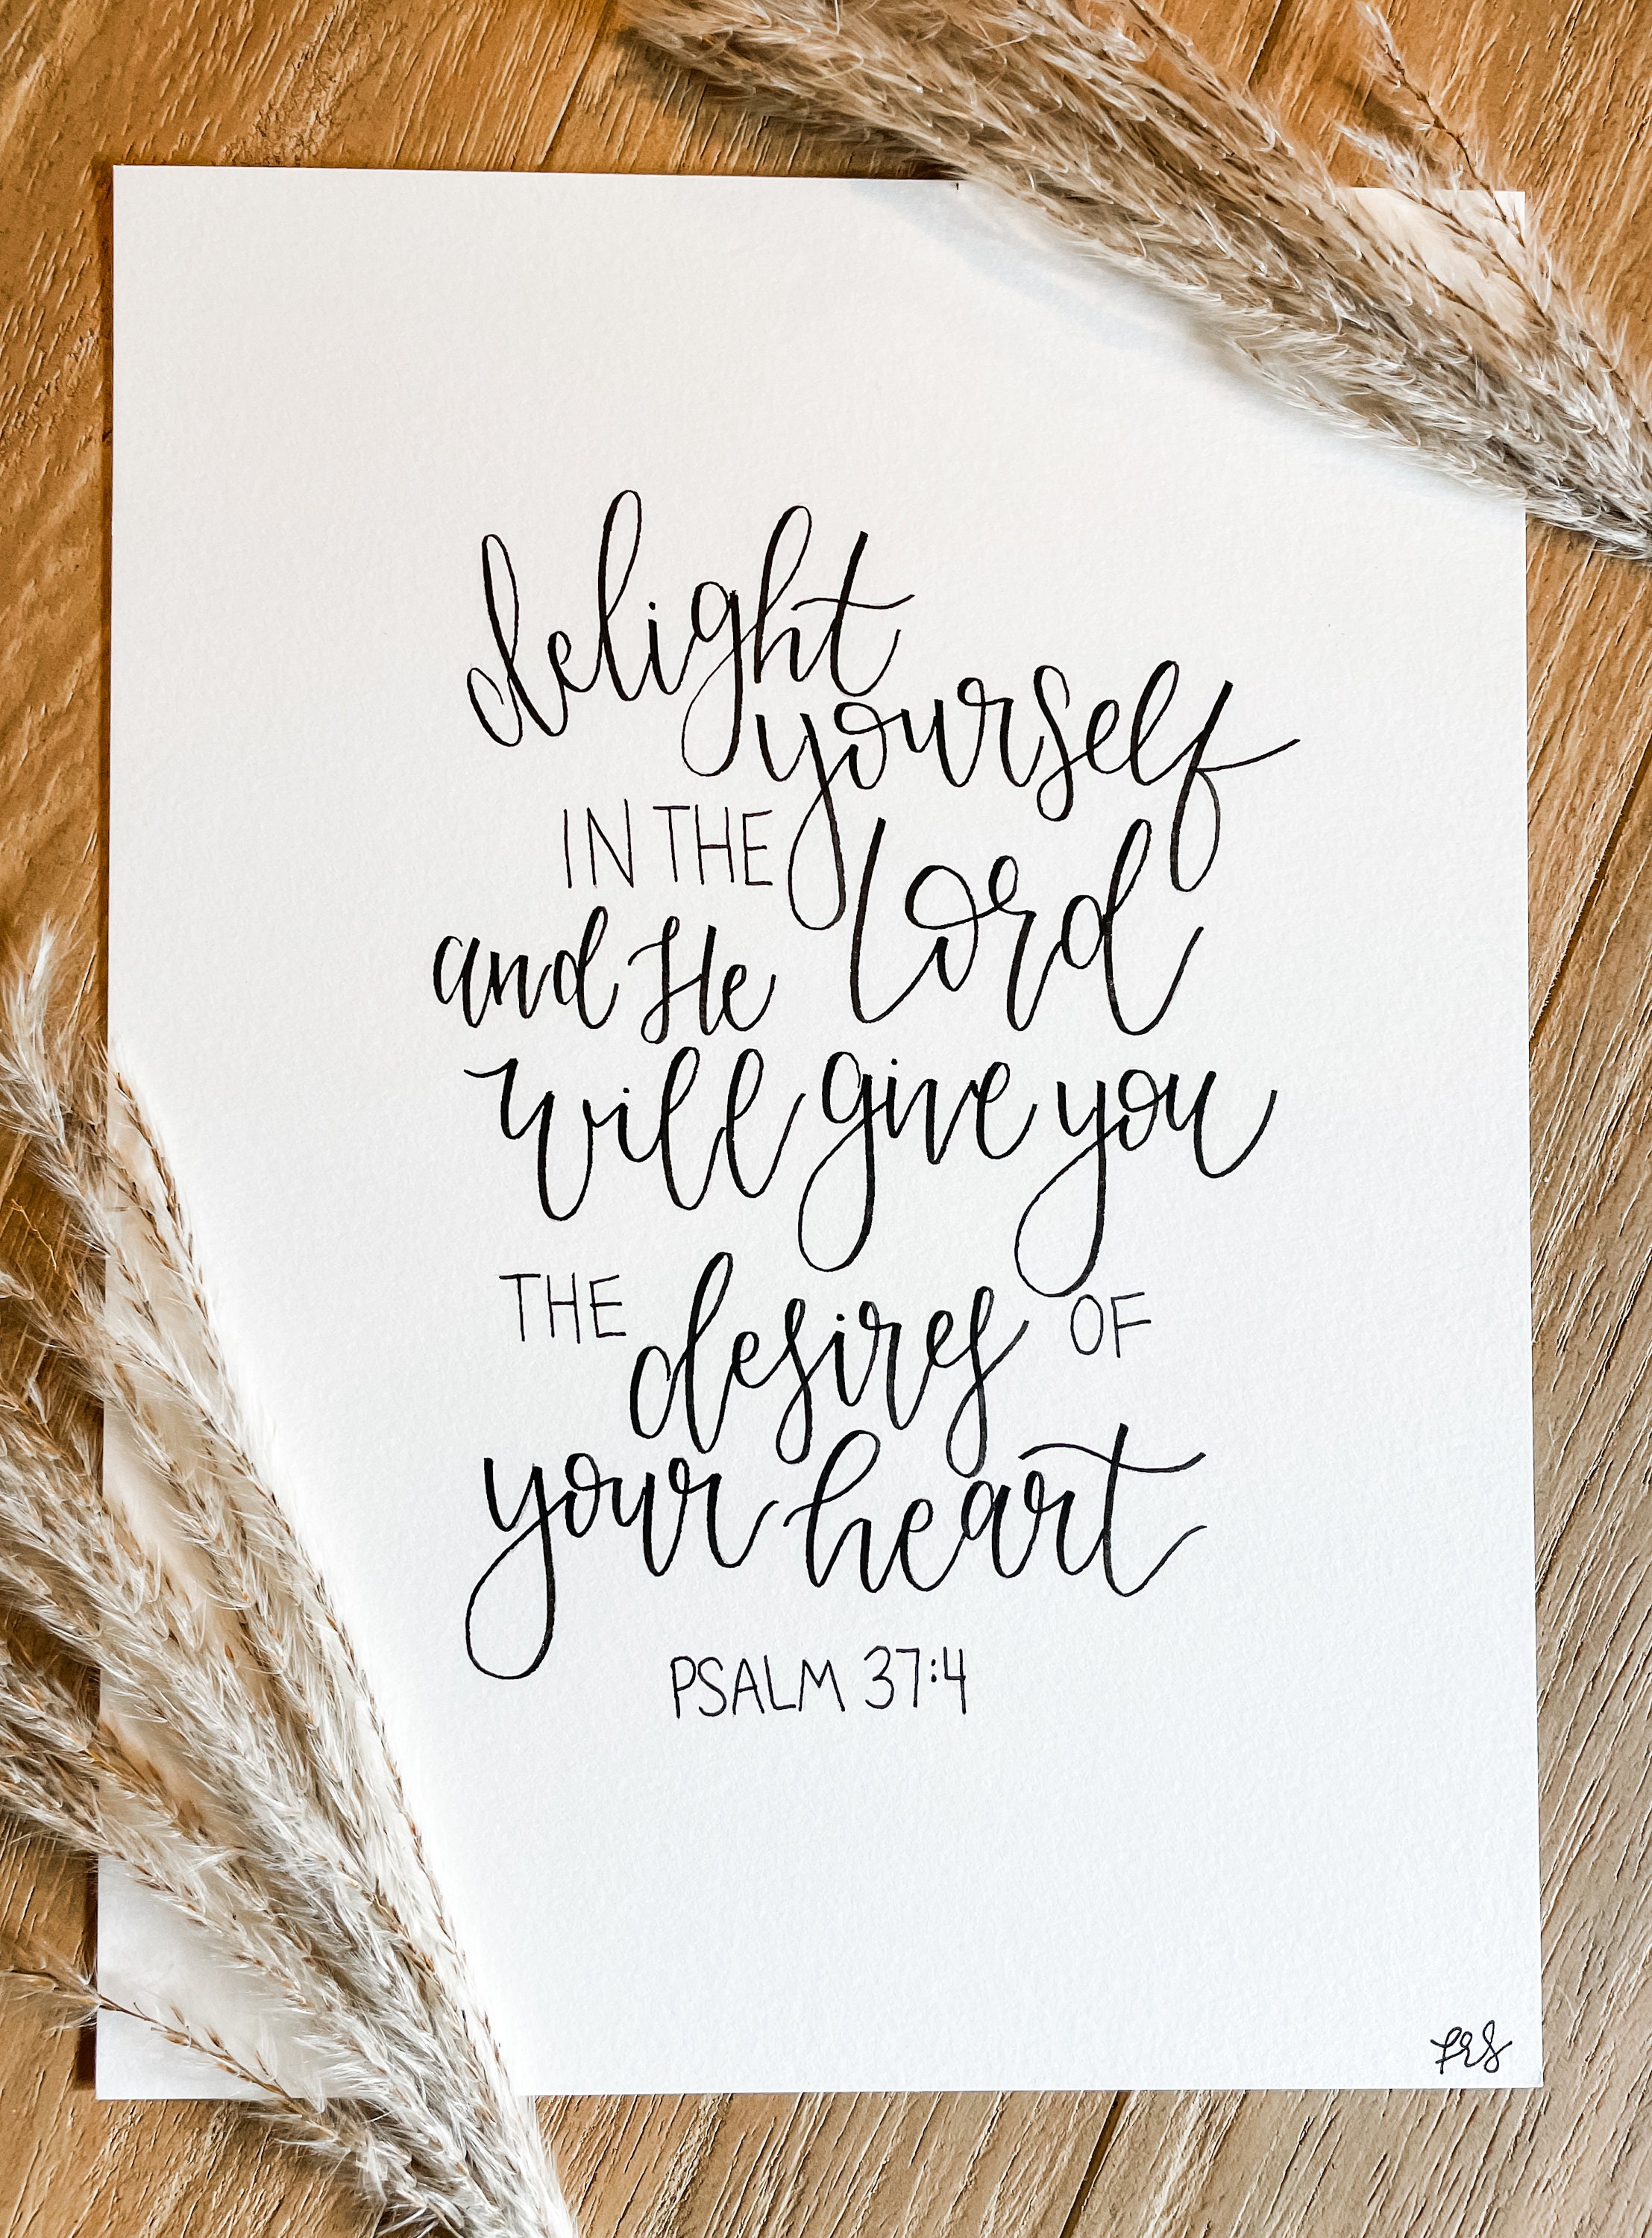 delight
yourself
IN THE Lord
and He
will give you
THE desires OF
your heart
PSALM 37:4